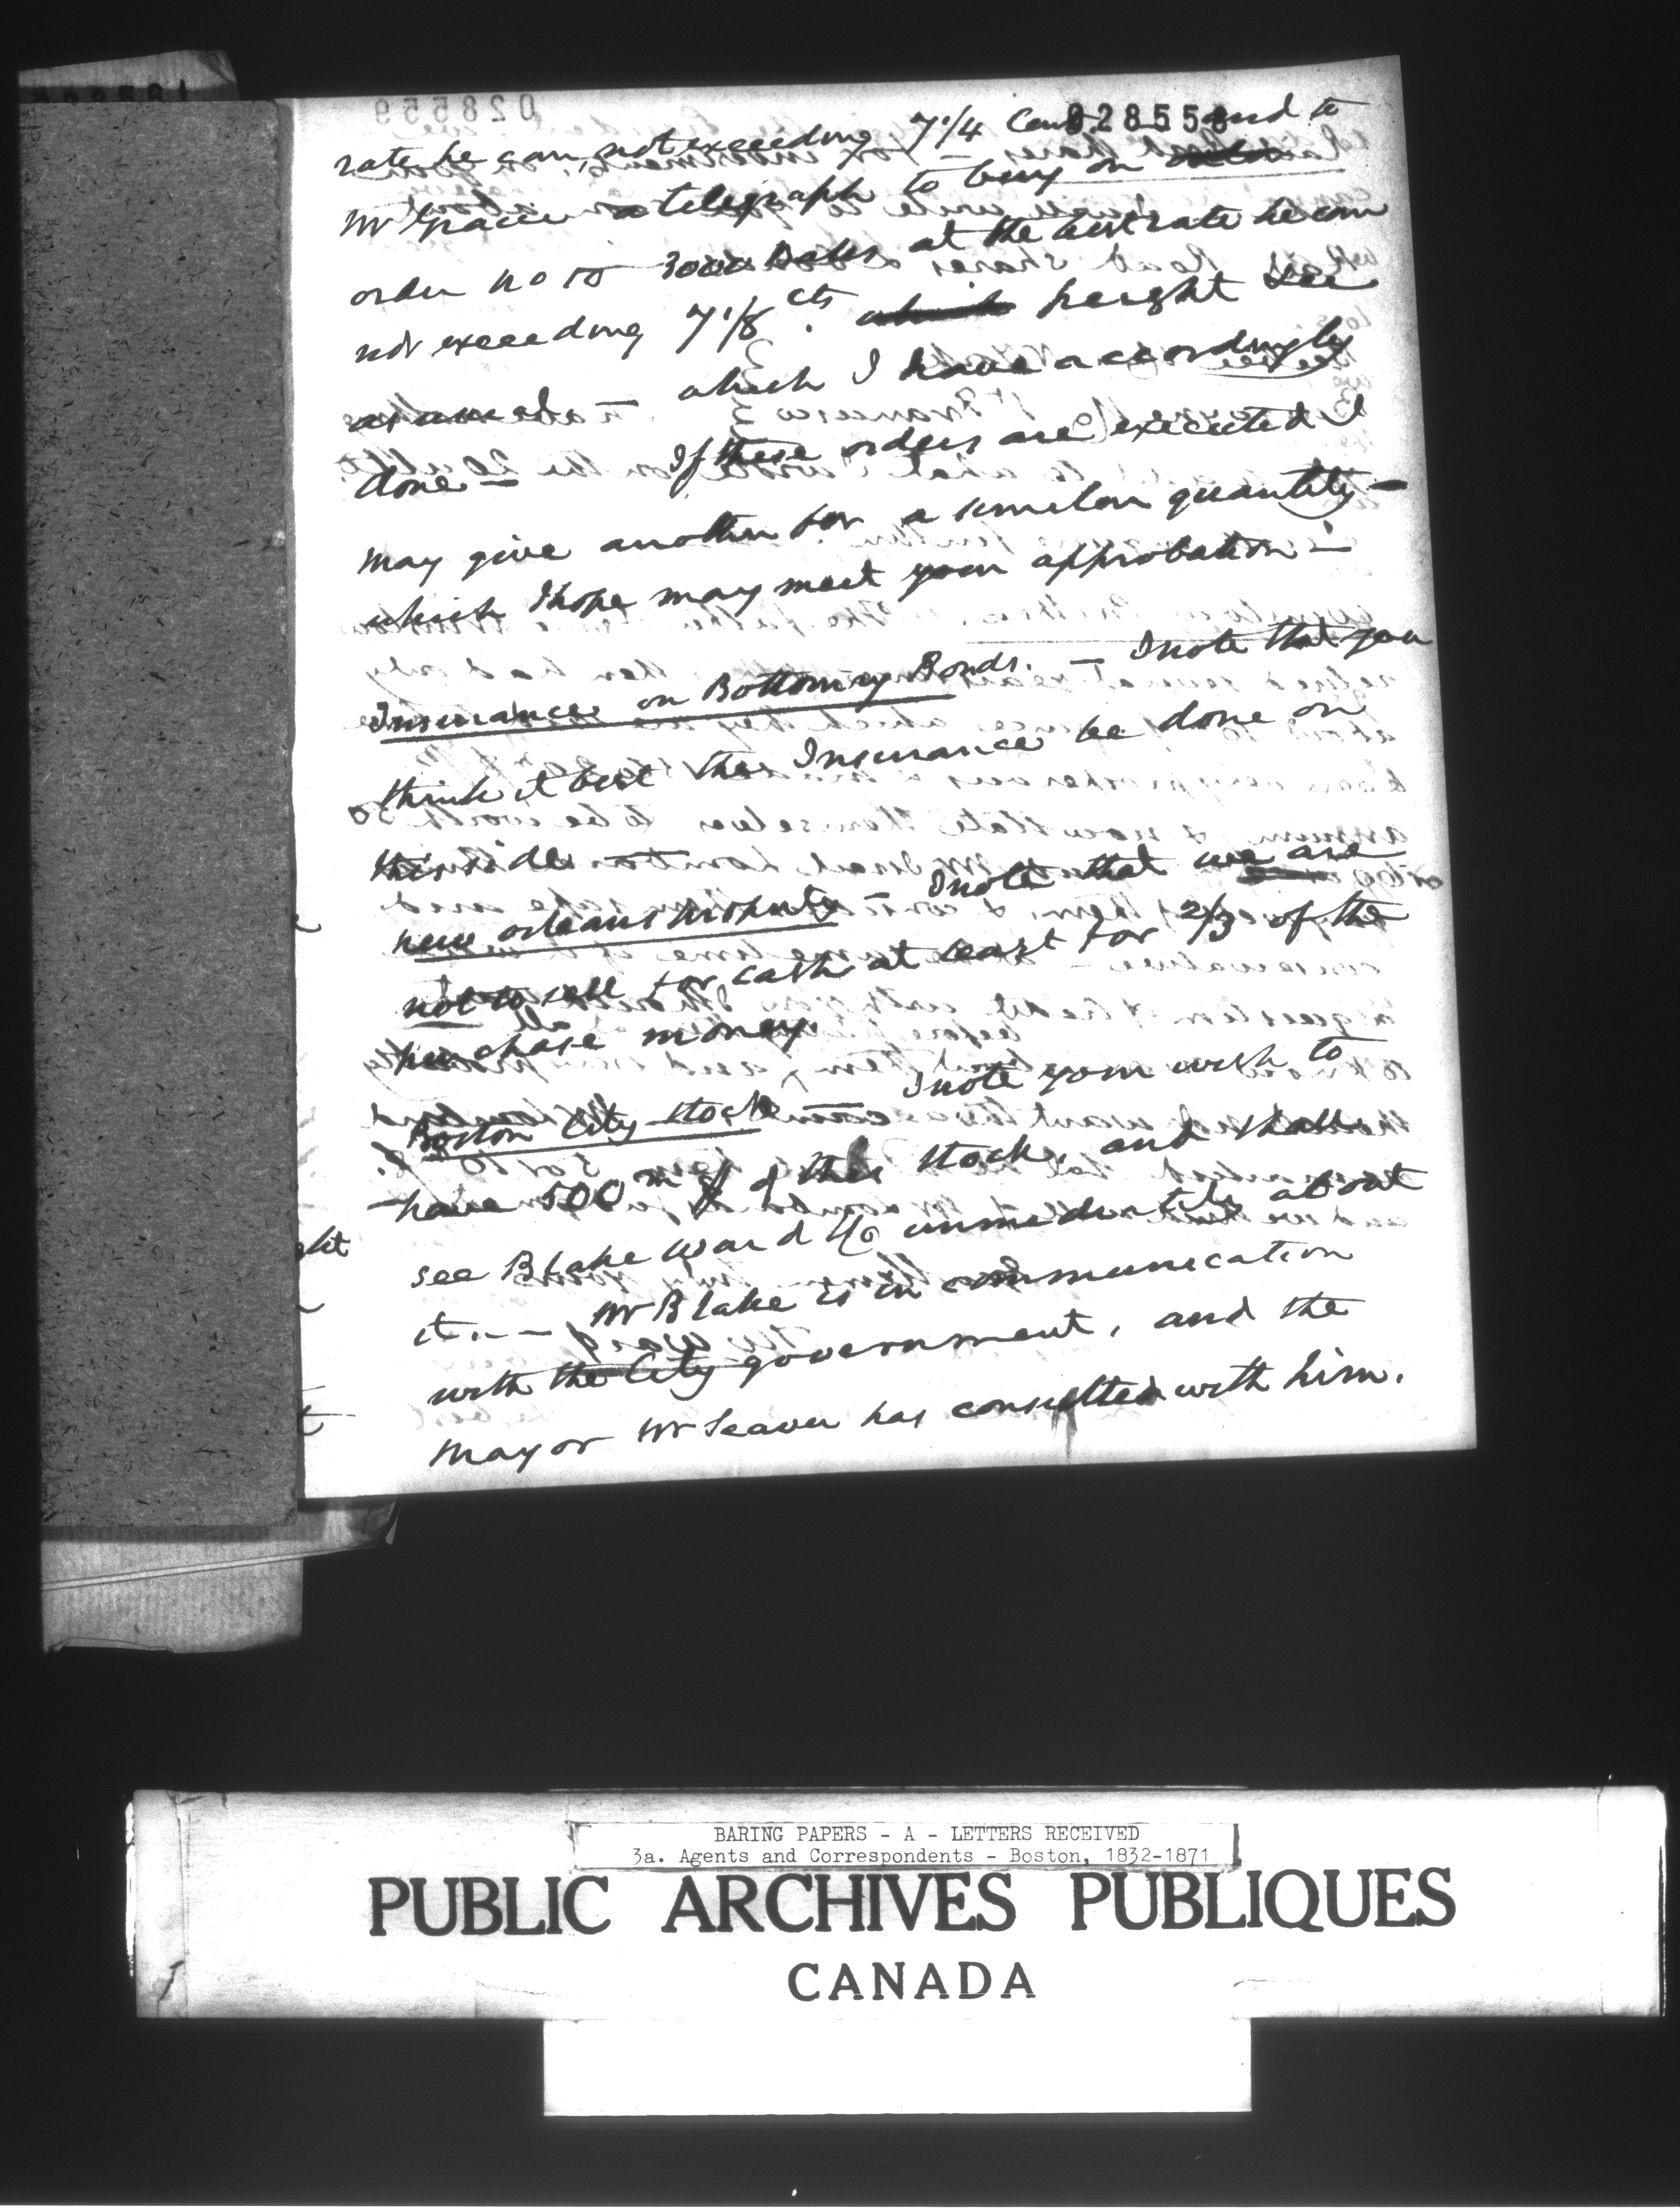 028558
rate he can, not exceeding 7 1/4 Cents and to
Mr Gracie a telegraph to buy on
order no 10 3000 Bales at the best rate he can
not exceeding 7 1/8 cts. which freight &c
as usual — which I have accordingly
done — If these orders are executed I
may give another for a similar quantity —
which I hope may meet your approbation —
Insurance on Bottomry Bonds. — I note that you
think it best the Insurance be done on
this side
New Orleans property — I note that we are
not to sell for cash at least for 2/3 of the
purchase money.
Boston City Stock — I note your wish to
have 500 m $ of this stock, and shall
see Blake Ward & Co immediately about
it. — Mr Blake is in communication
with the City government, and the
Mayor Mr Seaver has consulted with him.
BARING PAPERS - A - LETTERS RECEIVED
3a. Agents and Correspondents - Boston, 1832-1871
PUBLIC ARCHIVES PUBLIQUES
CANADA